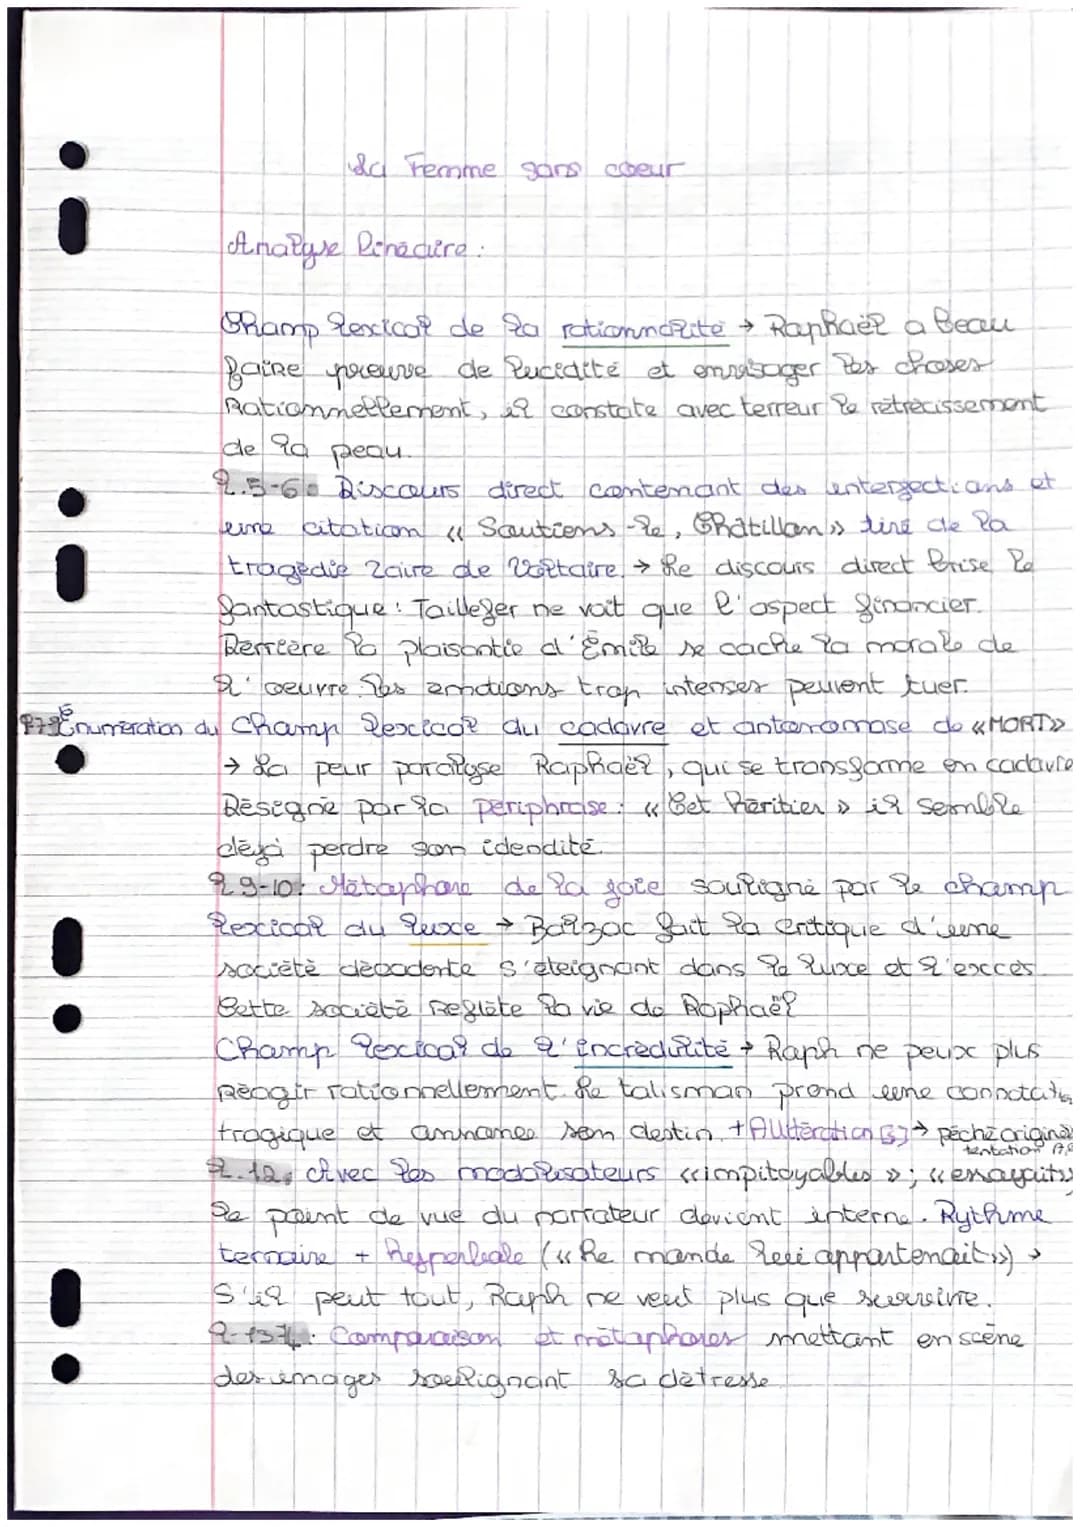 La Femme sans coeur
Analyse linéaire :
Champ lexical de la rationnalité → Raphaël a beau
faire preuve de lucidité et envisager les choses
Rationnellement, il constate avec terreur le rétrécissement
de la peau.
l.5-6: Discours direct contenant des interjections et
une citation « Soutiens-le, Châtillon » tiré de la
tragédie Zaire de Voltaire. → Le discours direct brise le
fantastique : Taillefer ne voit que l'aspect financier.
Derrière la plaisantie d'Émile se cache la morale de
l'oeuvre. Les émotions trop intenses peuvent tuer.
Énumération du champ lexical du cadavre et antonomase de «MORT»
→ La peur paralyse Raphaël, qui se transforme en cadavre
Désigné par la périphrase : « Cet héritier » il semble
déjà perdre son idendité.
l.9-10: Métaphore de la joie souligné par le champ
lexical du luxe → Balzac fait la critique d'une
société décadente s'éteignant dans le luxe et l'excès
Cette société reflète la vie de Raphaël
Champ lexical de l'incrédulité → Raph ne peux plus
Réagir rationnellement. Le talisman prend une connotatio
tragique et annonce son destin. + Allitération [s] → péché originel
tentation
l.12: Avec les modalisateurs «impitoyables »; «essayait»
le point de vue du narrateur devient interne. Rythme
ternaire + hyperbole (« Le monde lui appartenait ») →
S'il peut tout, Raph ne veut plus que survivre.
Comparaison et métaphores mettant en scène
des images soulignant sa détresse